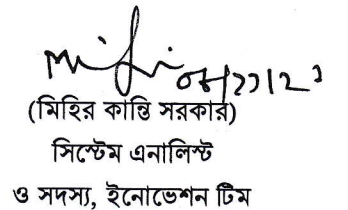 (মিহির কান্তি সরকার)
সিস্টেম এনালিস্ট
ও সদস্য, ইনোভেশন টিম